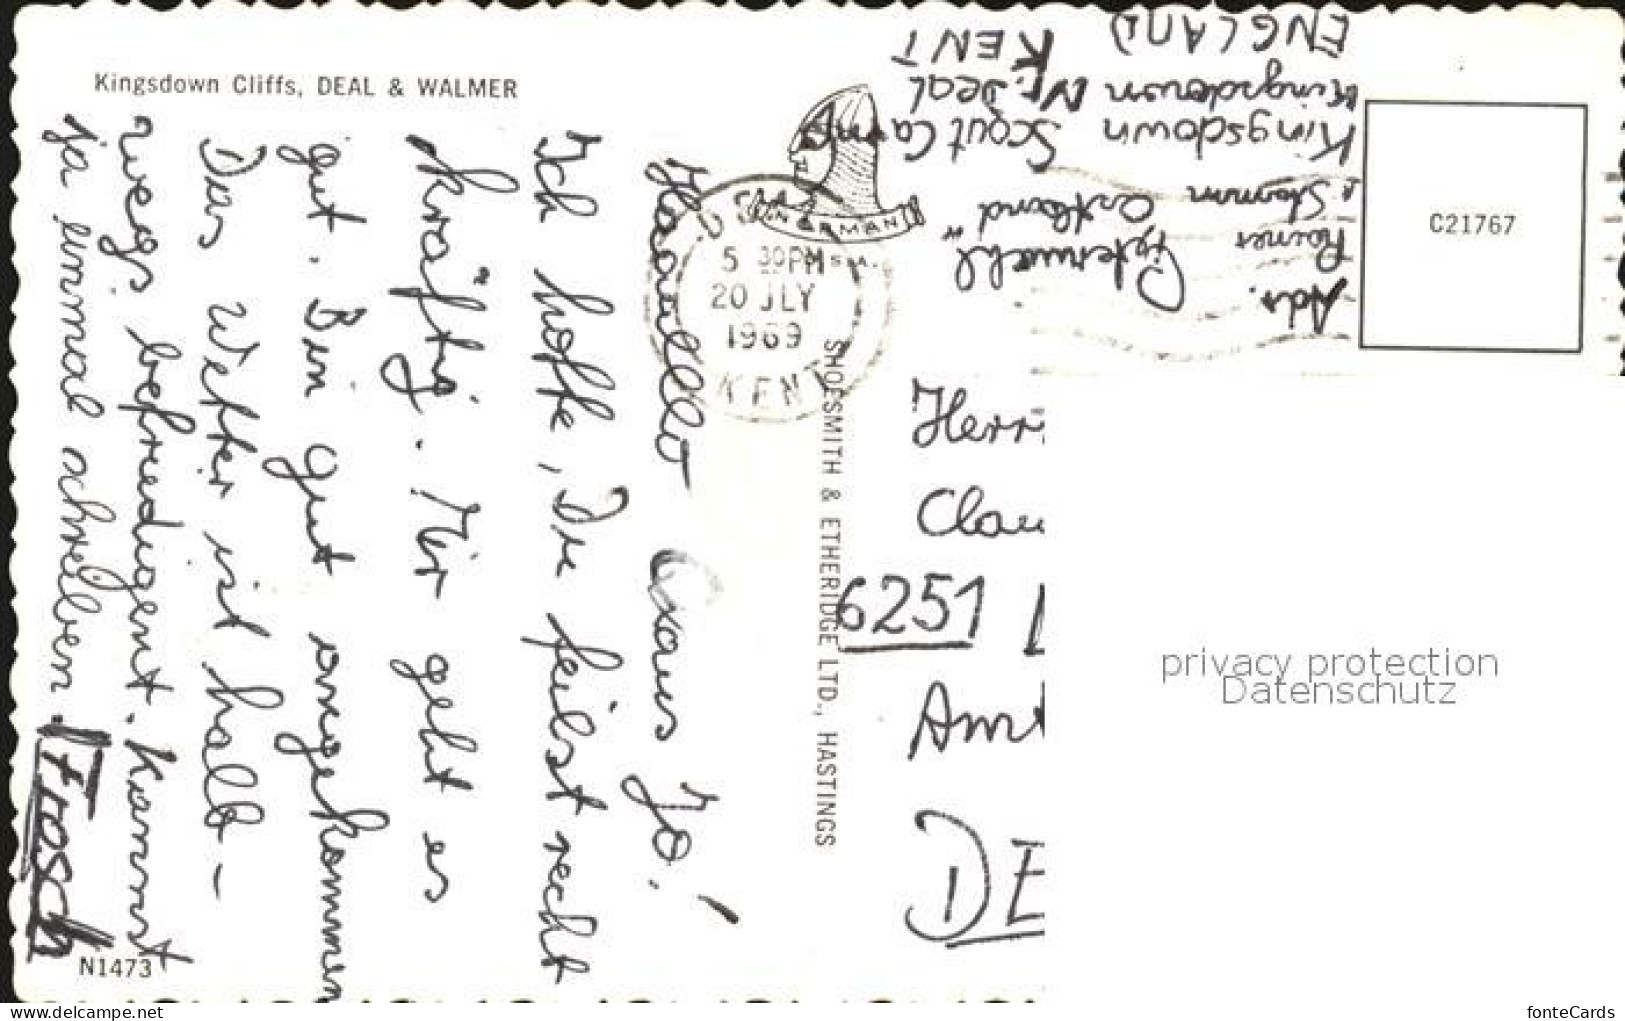 Kingsdown Cliffs, DEAL & WALMER
Hallo Jo!
Ich hoffe, Du feilst recht
kräftig. Mir geht es
gut. Bin gut angekommen
Das Wetter ist halb-
wegs befriedigent. Kannst
ja einmal schreiben.
Frosch
N1473
SHOESMITH & ETHERIDGE LTD., HASTINGS
5 30PM
20 JLY
1969
KENT
Adr.
Rainer
"Stamm
Kingsdown Scout Camp
Kingsdown Nr. Deal
KENT
ENGLAND
C21767
Herr
Clau
6251
Am
DE
privacy protection
Datenschutz
www.delcampe.net
fonteCards